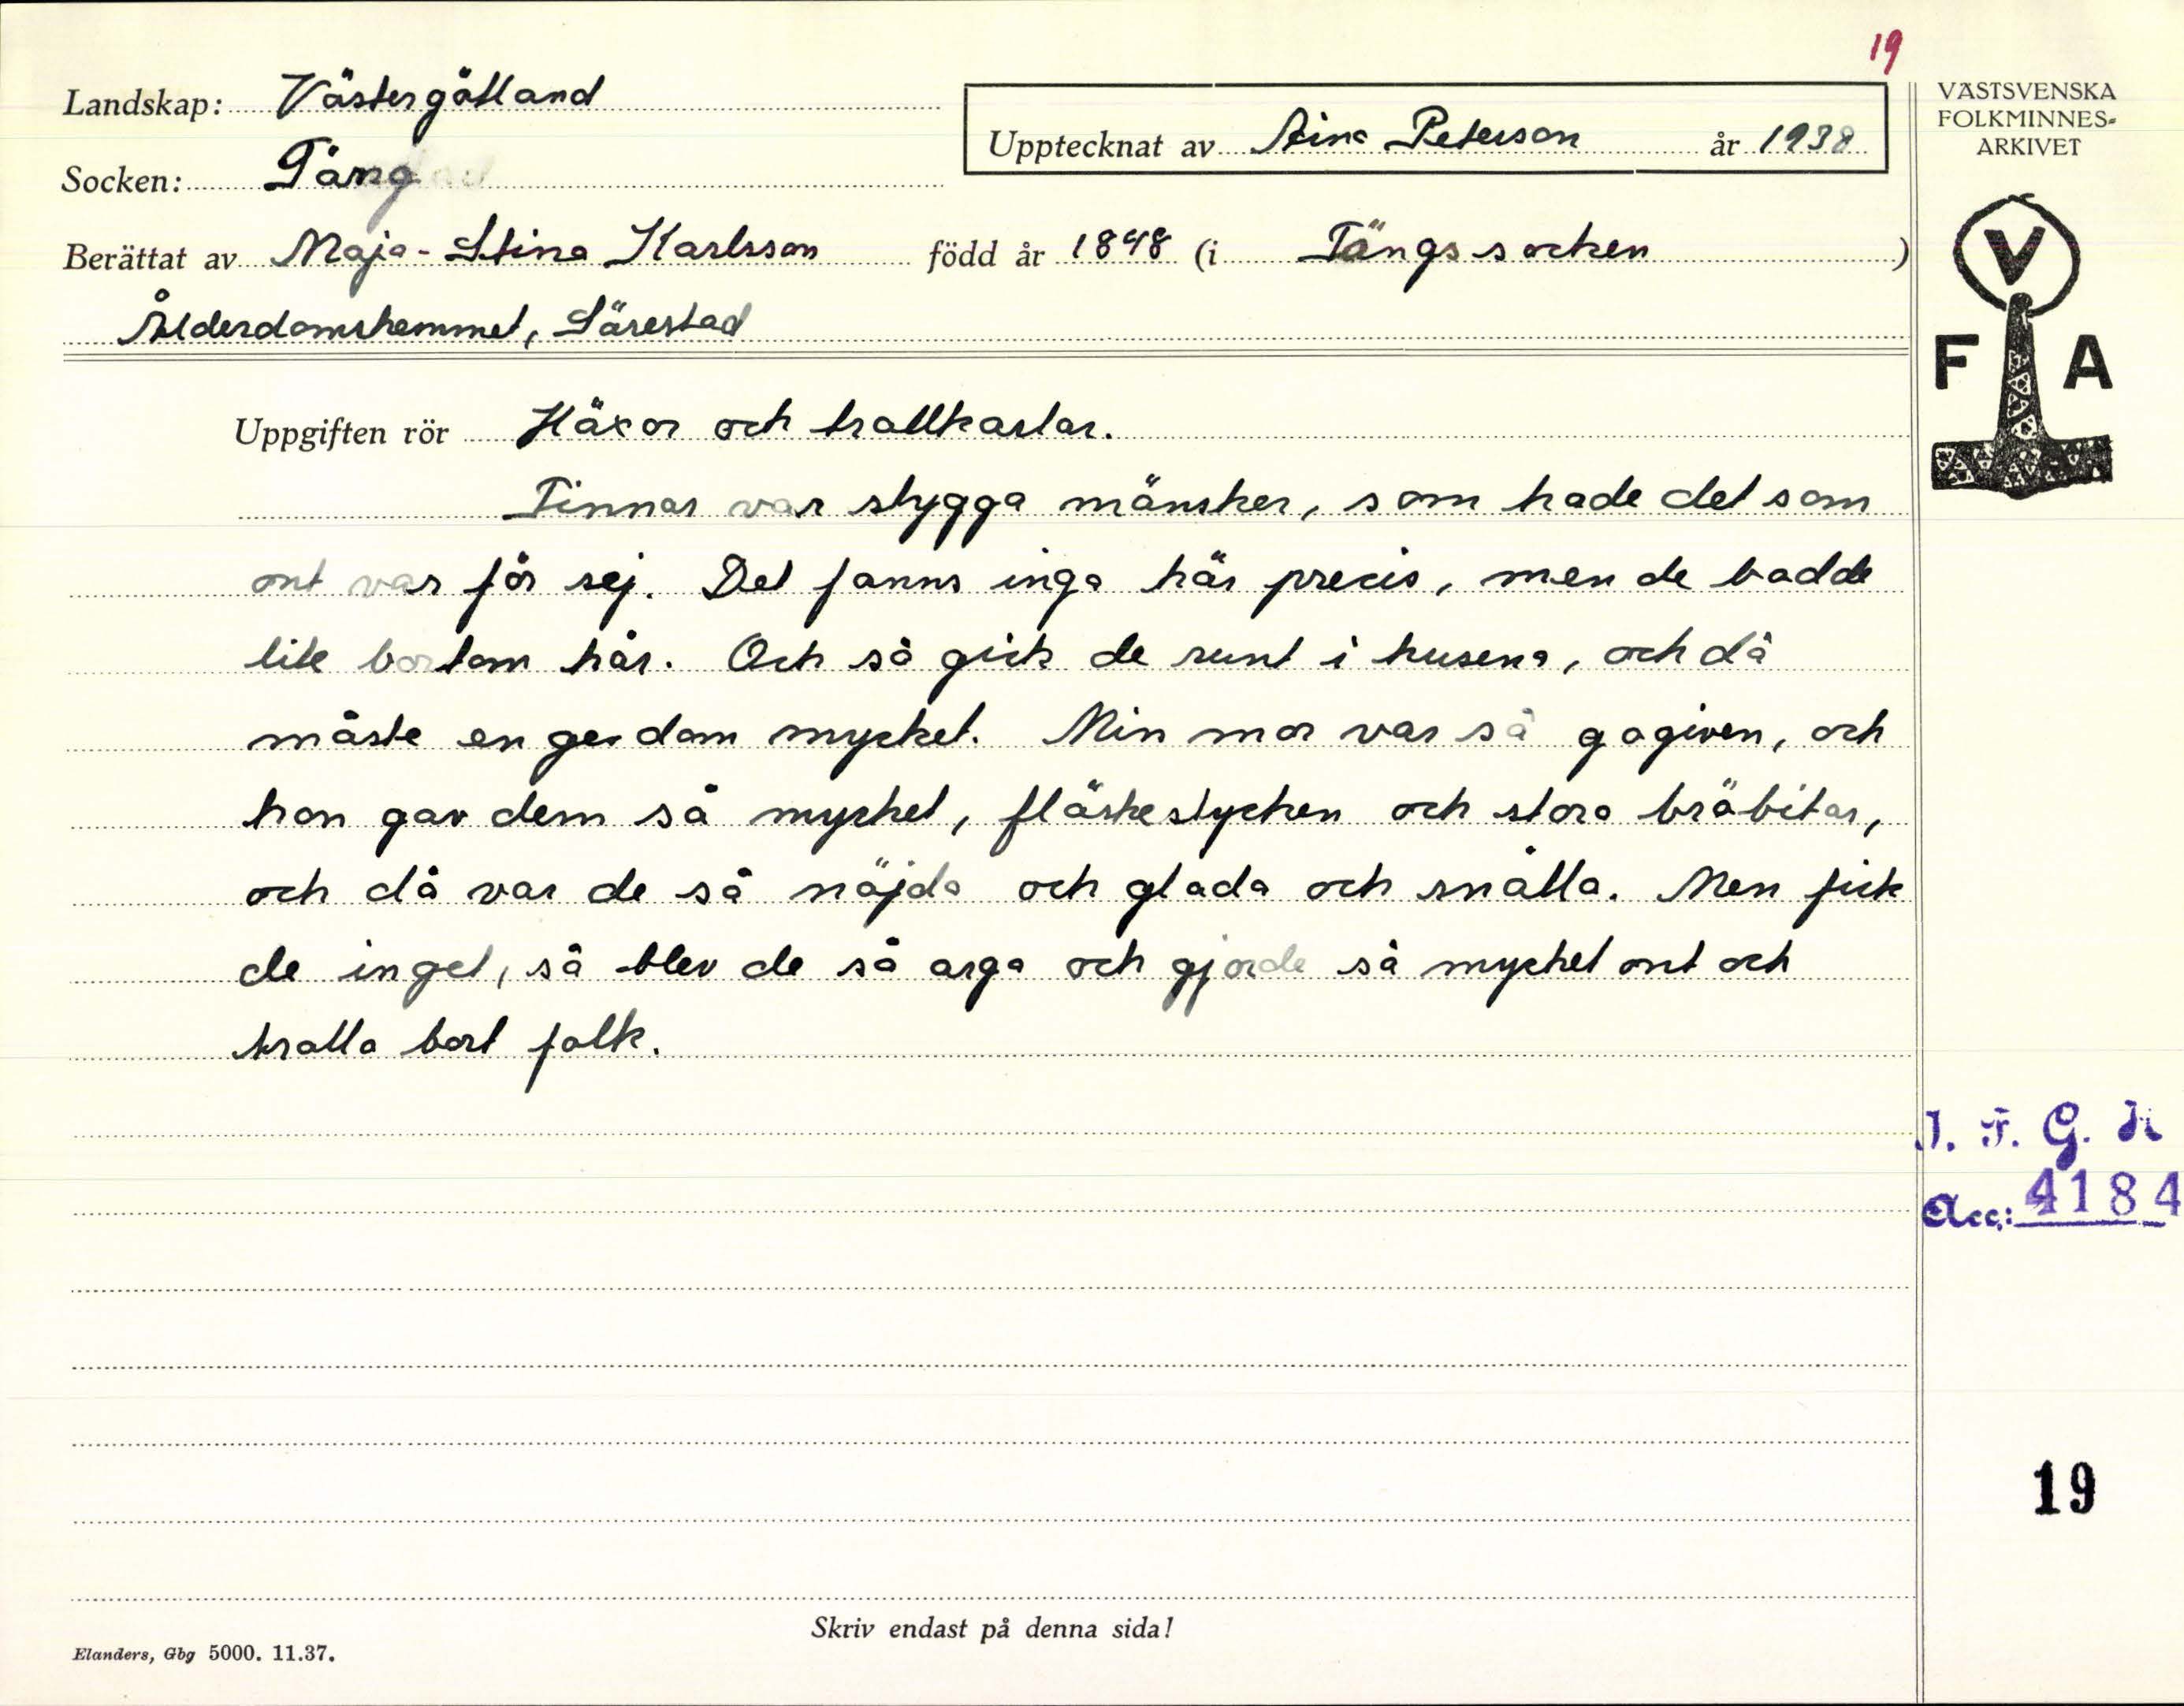 19
Landskap: Västergötland
Upptecknat av Aina Peterson år 1938
Socken: Täng
Berättat av Maja-Stina Karlsson född år 1848 (i Tängs socken)
Ålderdomshemmet, Särestad
VÄSTSVENSKA
FOLKMINNES-
ARKIVET
V
F A
Uppgiften rör Häxor och trollkarlar.
Finnar var stygga mänsker, som hade det som
ont var för sej. Det fanns inga här precis, men de bodde
lite bortom här. Och så gick de runt i husena, och då
måste en ge dom mycket. Min mor var så gogiven, och
hon gav dem så mycket, fläskestycken och stora bröbitar,
och då var de så nöjda och glada och snälla. Men fick
de inget, så blev de så arga och gjorde så mycket ont och
trolla bort folk.
I. F. G. H
Acc: 4184
19
Skriv endast på denna sida!
Elanders, Gbg 5000. 11.37.